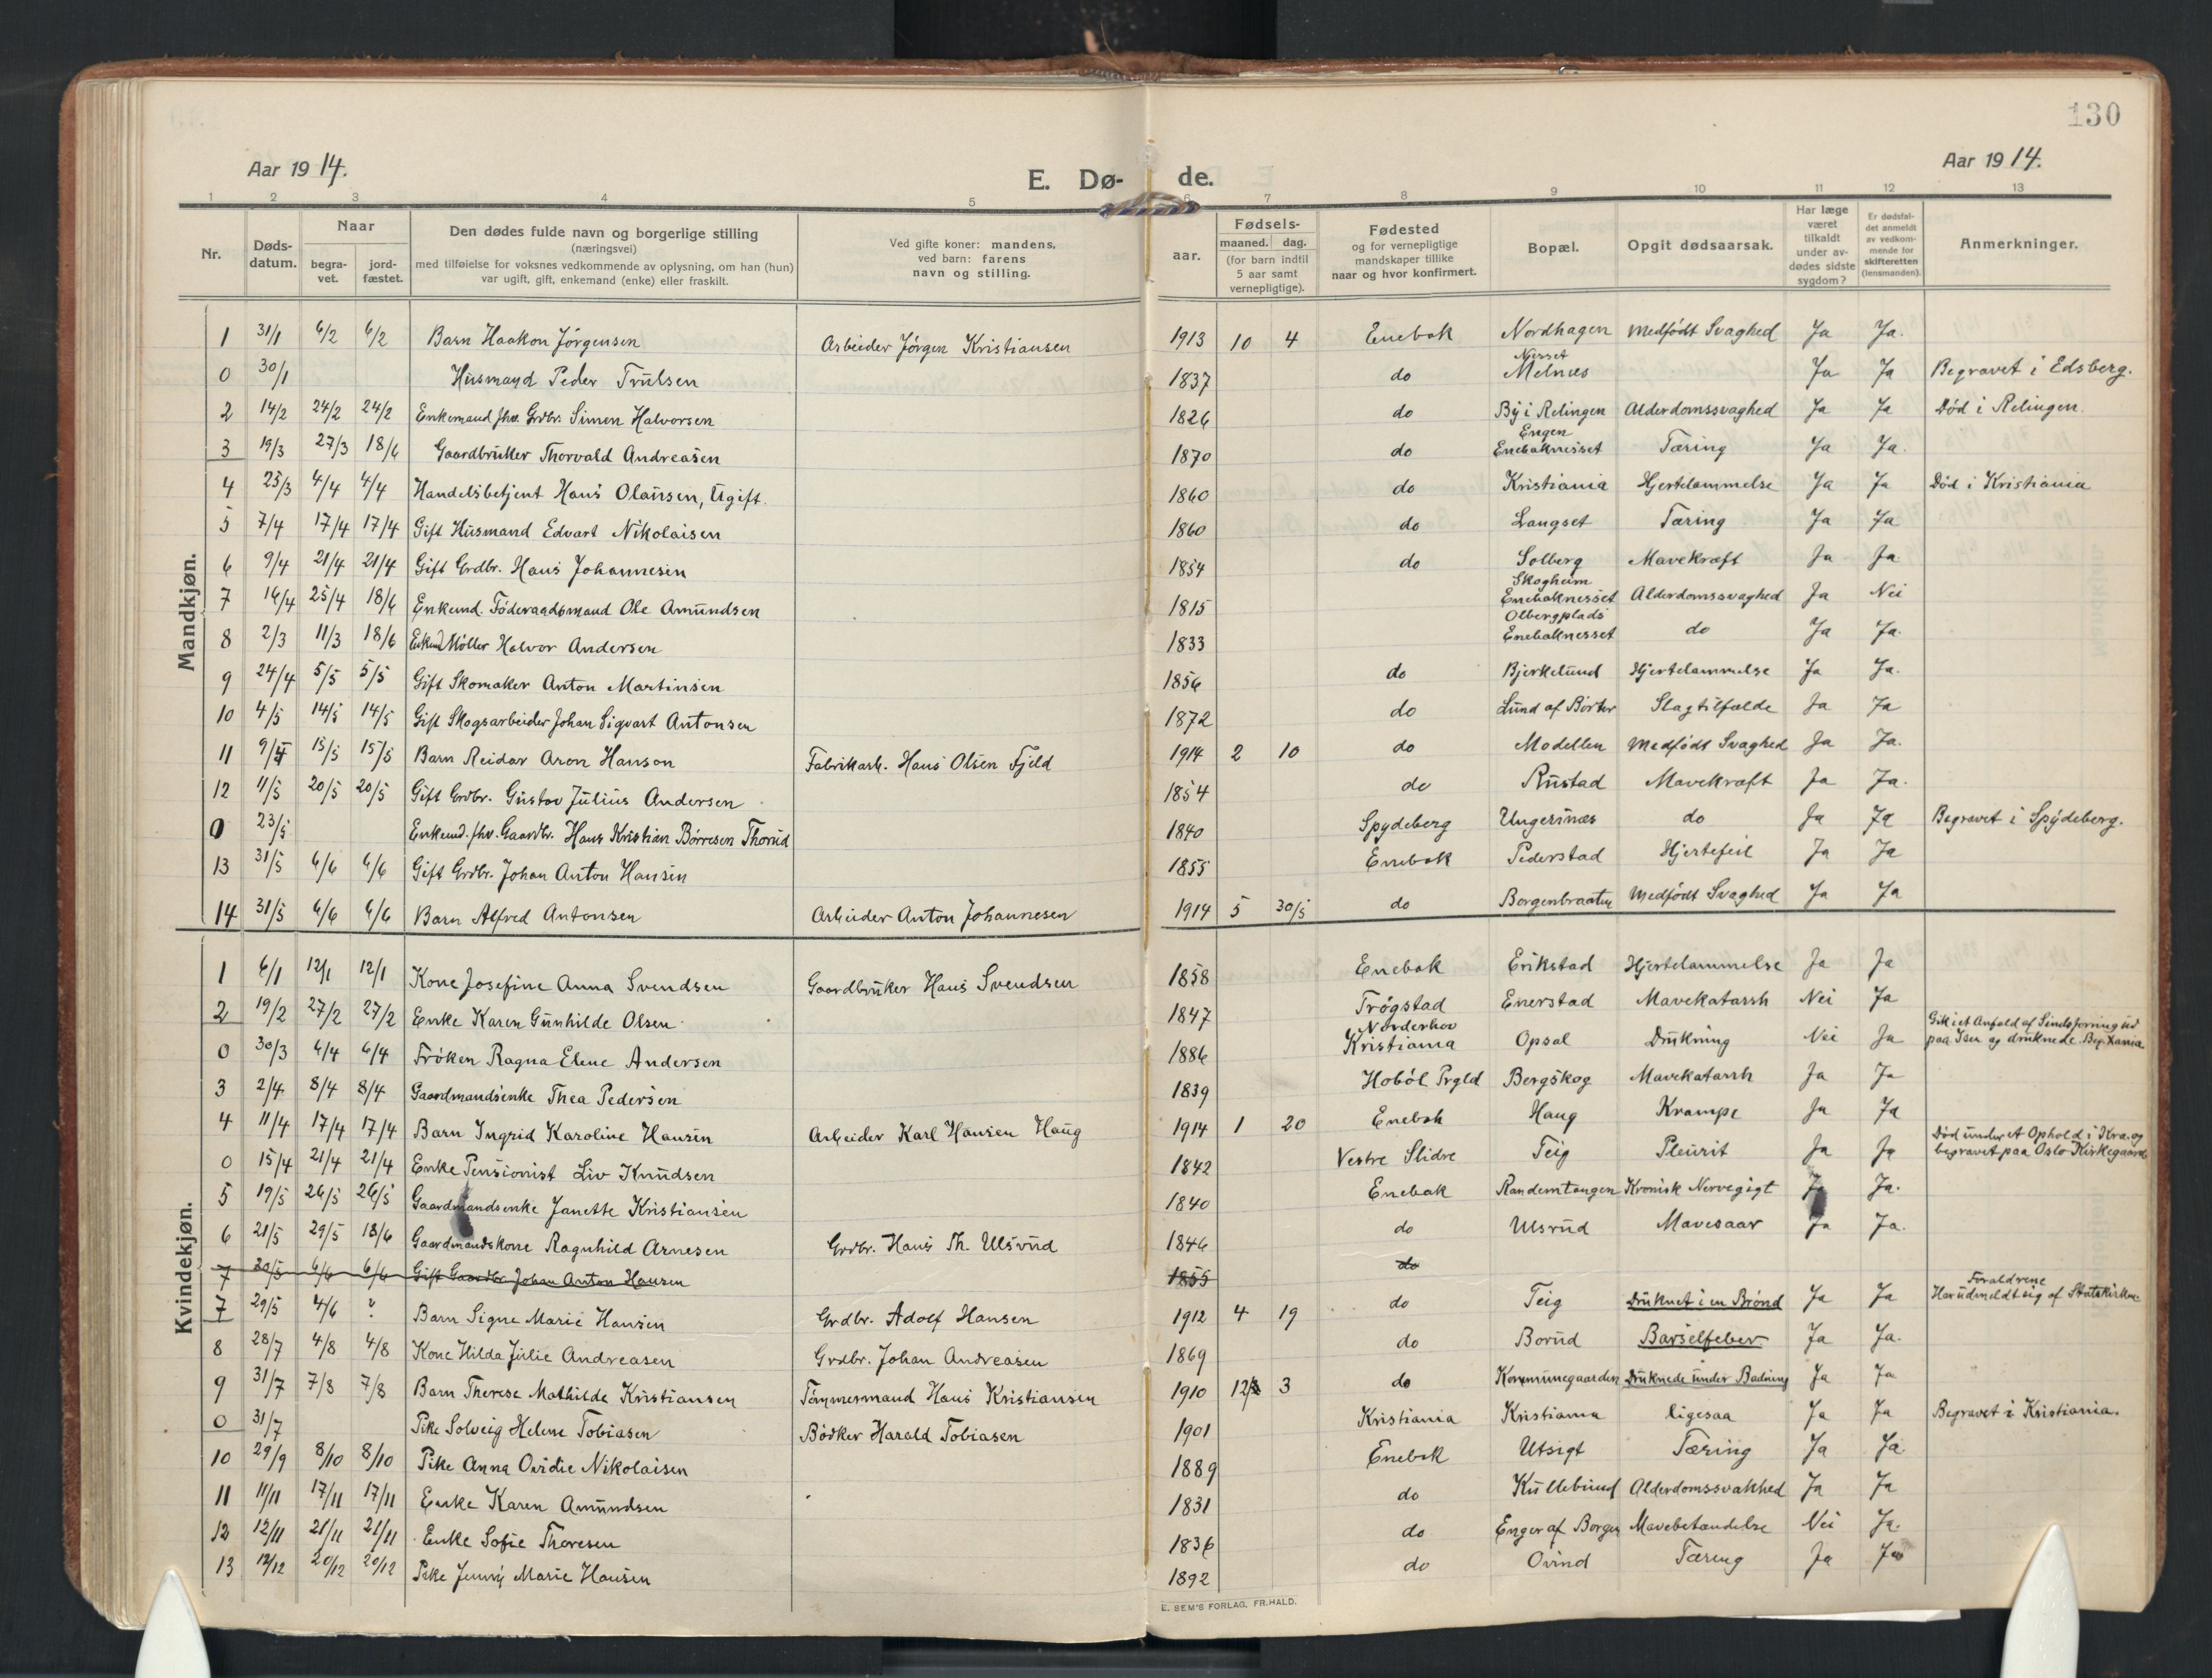 130
Aar 1914.
Aar 1914.
E. Dø- de.
1 2 3 4 5 6 7 8 9 10 11 12 13
Nr.
Døds-datum.
Naar
begra-vet.
jord-fæstet.
Den dødes fulde navn og borgerlige stilling
(næringsvei)
med tilføielse for voksnes vedkommende av oplysning, om han (hun)
var ugift, gift, enkemand (enke) eller fraskilt.
Ved gifte koner: mandens,
ved barn: farens
navn og stilling.
Fødsels-
aar.
maaned. dag.
(for barn indtil
5 aar samt
vernepligtige).
Fødested
og for vernepligtige
mandskaper tillike
naar og hvor konfirmert.
Bopæl.
Opgit dødsaarsak.
Har læge
været
tilkaldt
under av-
dødes sidste
sygdom?
Er dødsfal-
det anmeldt
av vedkom-
mende for
skifteretten
(lensmanden).
Anmerkninger.
Mandkjøn.
1 31/1 6/2 6/2 Barn Haakon Jørgensen Arbeider Jørgen Kristiansen 1913 10 4 Enebak Nordhagen Medfödt Svaghed Ja Ja.
0 30/1 Husmand Peder Trulsen 1837 do Nesset Melnes Ja Ja Begravet i Edsberg.
2 14/2 24/2 24/2 Enkemand fhv. Grdbr. Simen Halvorsen 1826 do By i Relingen Alderdomssvaghed Ja Ja Död i Relingen.
3 19/3 27/3 18/6 Gaardbruker Thorvald Andreasen 1870 do Engen Enebaknesset Tæring Ja Ja.
4 25/3 4/4 4/4 Handelsbetjent Hans Olausen, Ugift. 1860 do Kristiania Hjertelammelse Ja Ja Död i Kristiania
5 7/4 17/4 17/4 Gift Husmand Edvart Nikolaisen 1860 do Langset Tæring Ja Ja
6 9/4 21/4 21/4 Gift Grdbr. Hans Johannesen 1854 do Solberg Mavekræft Ja Ja
7 16/4 25/4 18/6 Enkemd. Föderaadsmand Ole Amundsen 1815 Skogheim Enebaknesset Alderdomssvaghed Ja Nei
8 2/3 11/3 18/6 Enkemd Möller Halvor Andersen 1833 Olbergplads Enebaknesset do Ja Ja.
9 24/4 5/5 5/5 Gift Skomaker Anton Martinsen 1856 do Bjerkelund Hjertelammelse Ja Ja.
10 4/5 14/5 14/5 Gift Skogsarbeider Johan Sigvart Antonsen 1872 do Lund af Börter Slagtilfælde Ja Ja
11 15/5 15/5 Barn Reidar Aron Hanson Fabrikarb. Hans Olsen Fjeld 1914 2 10 do Modellen Medfödt Svaghed Ja Ja.
12 11/5 20/5 20/5 Gift Grdbr. Gustav Julius Andersen 1854 do Rustad Mavekræft Ja Ja.
0 23/5 Enkemd. fhv. Gaardbr. Hans Kristian Børresen Thorud 1840 Spydeberg Ungersnæs do Ja Ja Begravet i Spydeberg.
13 31/5 6/6 6/6 Gift Grdbr. Johan Anton Hansen 1855 Enebak Pederstad Hjertefeil Ja Ja
14 31/5 6/6 6/6 Barn Alfred Antonsen Arbeider Anton Johannesen 1914 5 30/5 do Borgenbraaten Medfödt Svaghed Ja Ja
Kvindekjøn.
1 6/1 12/1 12/1 Kone Josefine Anna Svendsen Gaardbruker Hans Svendsen 1858 Enebak Erikstad Hjertelammelse Ja Ja
2 19/2 27/2 27/2 Enke Karen Gunhilde Olsen 1847 Trögstad Enerstad Mavekatarrh Nei Ja
0 30/3 6/4 6/4 Fröken Ragna Elene Andersen 1886 Norderhov Kristiania Opsal Drukning Nei Ja Gik i et Anfald af Sindsforvirring ud paa Isen og druknede. Beg. Kania
3 2/4 8/4 8/4 Gaardmandsenke Thea Pedersen 1839 Hoböl Prgld Bergskog Mavekatarrh Ja Ja
4 11/4 17/4 17/4 Barn Ingrid Karoline Hansen Arbeider Karl Hansen Haug 1914 1 20 Enebak Haug Krampe Ja Ja
0 15/4 21/4 21/4 Enke Pensionist Liv Knudsen 1842 Vestre Slidre Teig Pleurit Ja Ja Död under et Ophold i Kra. og begravet paa Oslo Kirkegaard
5 19/5 26/5 26/5 Gaardmandsenke Janette Kristiansen 1840 Enebak Randemtangen Kronisk Nervegigt Ja Ja.
6 21/5 29/5 18/6 Gaardmandskone Ragnhild Arnesen Grdbr. Hans Th. Ulsrud 1846 do Ulsrud Mavesaar Ja Ja.
7 30/5 6/6 6/6 Gift Gaardbr Johan Anton Hansen 1855 do
7 29/5 4/6 ? Barn Signe Marie Hansen Grdbr. Adolf Hansen 1912 4 19 do Teig Druknet i en Brönd Ja Ja Forældrene Har udmeldt sig af Statskirken
8 28/7 4/8 4/8 Kone Hilda Julie Andreasen Grdbr. Johan Andreasen 1869 do Borud Barselfeber Ja Ja.
9 31/7 7/8 7/8 Barn Therese Mathilde Kristiansen Tömmermand Hans Kristiansen 1910 12 3 do Kommunegaarden Druknede under Badning Ja Ja
0 31/7 Pike Solveig Helene Tobiasen Bödker Harald Tobiasen 1901 Kristiania Kristiania ligesaa Ja Ja Begravet i Kristiania.
10 29/9 8/10 8/10 Pike Anna Ovidie Nikolaisen 1889 Enebak Utsigt Tæring Ja Ja
11 11/11 17/11 17/11 Enke Karen Amundsen 1831 do Kullebund Alderdomssvakhed Ja Ja
12 12/11 21/11 21/11 Enke Sofie Thoresen 1836 do Enger af Borger Mavebetændelse Nei Ja.
13 12/12 20/12 20/12 Pike Jenny Marie Hansen 1892 do Ovind Tæring Ja Ja
E. SEM'S FORLAG, FR.HALD.